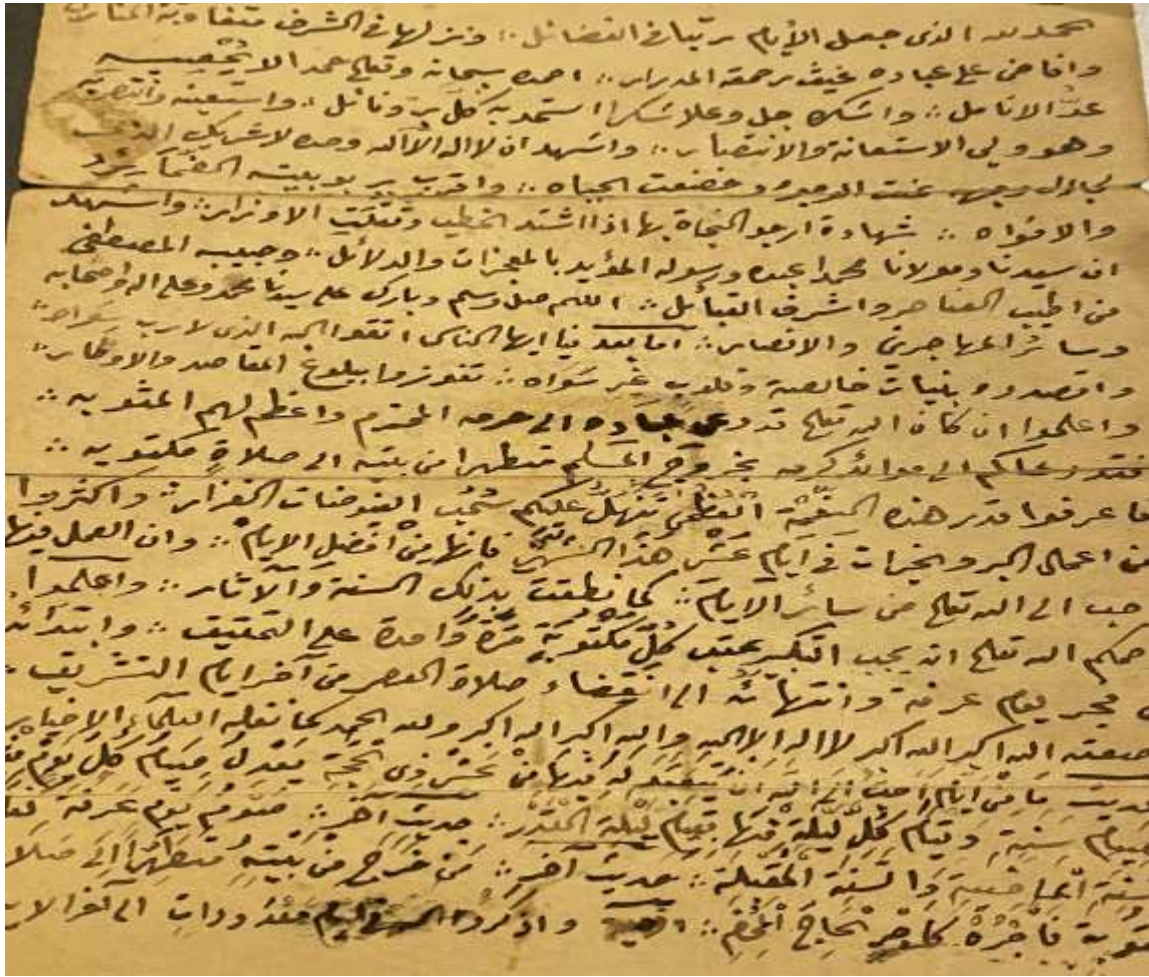 الحمد لله الذي جعل الأيام رتبا في الفضائل ∴ ونزلها في الشرف متفاوتة المنازل
وافاض على عباده غيث رحمته المدرار ∴ احمده سبحانه وتعالى حمدا لا يحصيه
عدّ الانامل ∴ واشكره جل وعلا شكرا استمد به كل بر ونائل ∴ واستعينه وانتصر به
وهو ولي الاستعانة والانتصار ∴ واشهد ان لا اله الا الله وحده لا شريك له الذي
لجلال وجهه عنت الوجوه وخضعت الجباه ∴ واقرت بربوبيته الضمائر
والافواه ∴ شهادة ارجو النجاة بها اذا اشتد الخطب وثقلت الاوزار ∴ واشهد
ان سيدنا ومولانا محمدا عبده ورسوله المؤيد بالمعجزات والدلائل ∴ وحبيبه المصطفى
من اطيب العناصر واشرف القبائل ∴ اللهم صل وسلم وبارك على سيدنا محمد وعلى اله واصحابه
وسائر المهاجرين والانصار ∴ اما بعد فيا ايها الناس اتقوا الله الذي لا رب سواه ∴
واقصدوه بنيات خالصة وقلوب غير سواه ∴ تفوزوا ببلوغ المقاصد والاوطار ∴
واعلموا ان كان الله تعالى قد دعى عباده الى حرمه المحترم واعظم لهم المثوبه ∴
فقد دعاكم الى موائد كرمه بخروج المسلم متطهرا من بيته الى صلاة مكتوبه ∴
فاعرفوا قدر هذه النعمة العظمى تنهل عليكم سحب الفيوضات الغزار ∴ واكثروا
من اعمال البر والخيرات في ايام عشر هذا الشهر فانها من افضل الايام ∴ وان العمل فيها
احب الى الله تعالى من سائر الايام ∴ كما نطقت بذلك السنة والآثار ∴ واعلموا
رحمكم الله تعالى انه يجب التكبير عقب كل مكتوبة مرة واحدة على التحقيق ∴ وابتدائه
من فجر يوم عرفة وانتهائه الى انقضاء صلاة العصر من آخر ايام التشريق ∴
وصيغته الله اكبر الله اكبر لا اله الا الله والله اكبر الله اكبر ولله الحمد كما نقله العلماء الاخيار
حديث ما من ايام احب الى الله ان يتعبد له فيها من عشر ذي الحجة يعدل صيام كل يوم منها
صيام سنة وقيام كل ليلة منها بقيام ليلة القدر ∴ حديث اخر ∴ صوم يوم عرفة
السنة الماضية والسنة المقبلة ∴ حديث اخر ∴ من خرج من بيته متطهرا الى صلاة
مكتوبة فاجره كاجر الحاج المحرم ∴ واذكروا الله في ايام معدودات الى آخر الاية